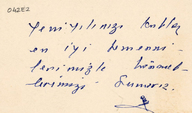 04282
Yeni Yılınızı kutlar
en iyi temenni-
lerimizle hürmet-
lerimizi sunarız.